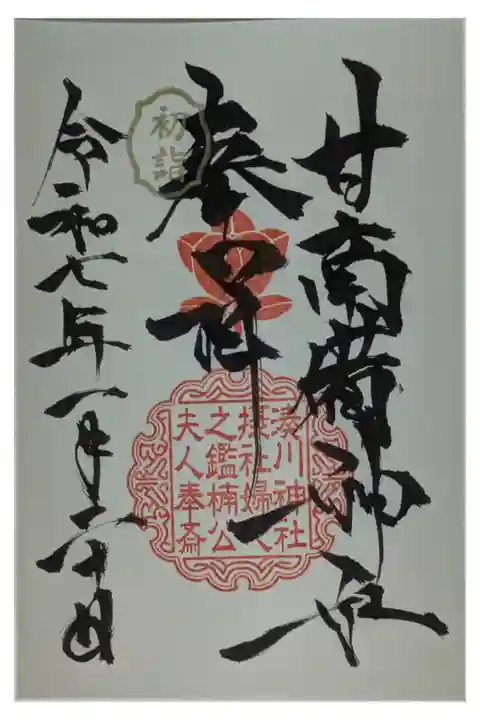 甘南備神社
奉拝
初詣
湊川神社
摂社婦人
之鑑楠公
夫人奉斎
令和七年一月二十日